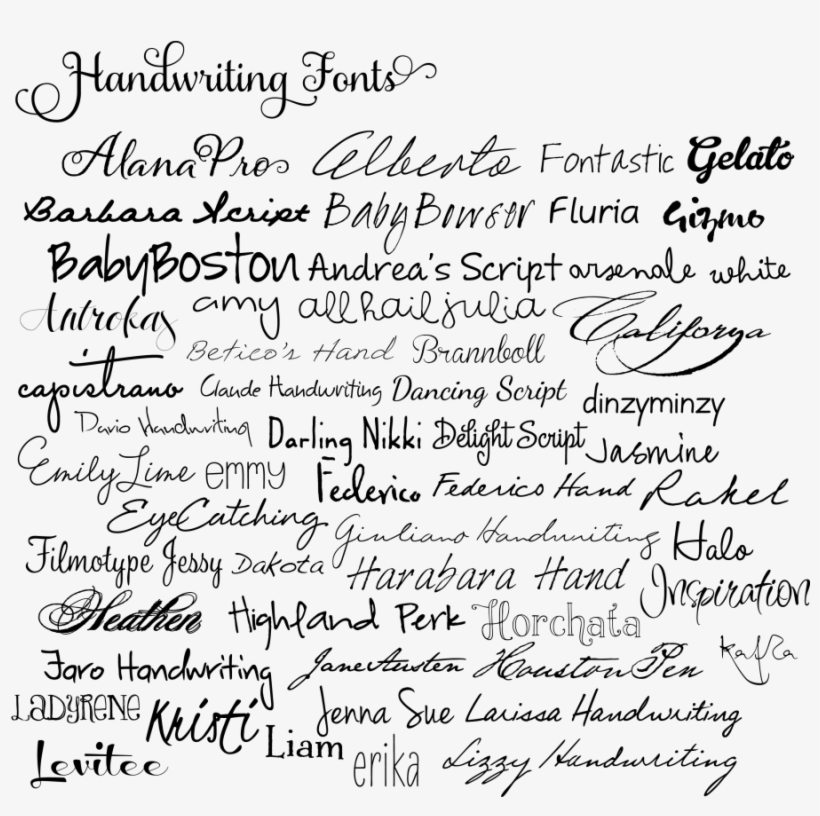 Handwriting Fonts
AlanaPro Alberto Fontastic Gelato
Barbara Script BabyBowser Fluria Gizmo
BabyBoston Andrea's Script arsenale white
Antrokas amy allhailjulia Californya
Betico's Hand Brannboll
capistrano Claude Handwriting Dancing Script dinzyminzy
Dario Handwriting Darling Nikki Delight Script Jasmine
Emily Lime emmy Federico Federico Hand Rakel
EyeCatching Giuliano Handwriting Halo
Filmotype Jessy Dakota Harabara Hand Inspiration
Heathen Highland Perk Horchata
Jaro Handwriting JaneAusten HoustonPen kafka
LADYRENE Kristi Jenna Sue Larissa Handwriting
Levitee Liam erika Lizzy Handwriting